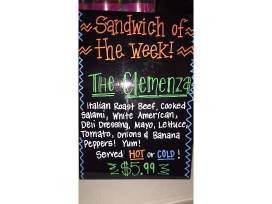 Sandwich of
The Week!
The Clemenza
Italian Roast Beef, Cooked
Salami, White American,
Deli Dressing, Mayo, Lettuce,
Tomato, Onions & Banana
Peppers! Yum!
Served HOT or COLD!
$5.99